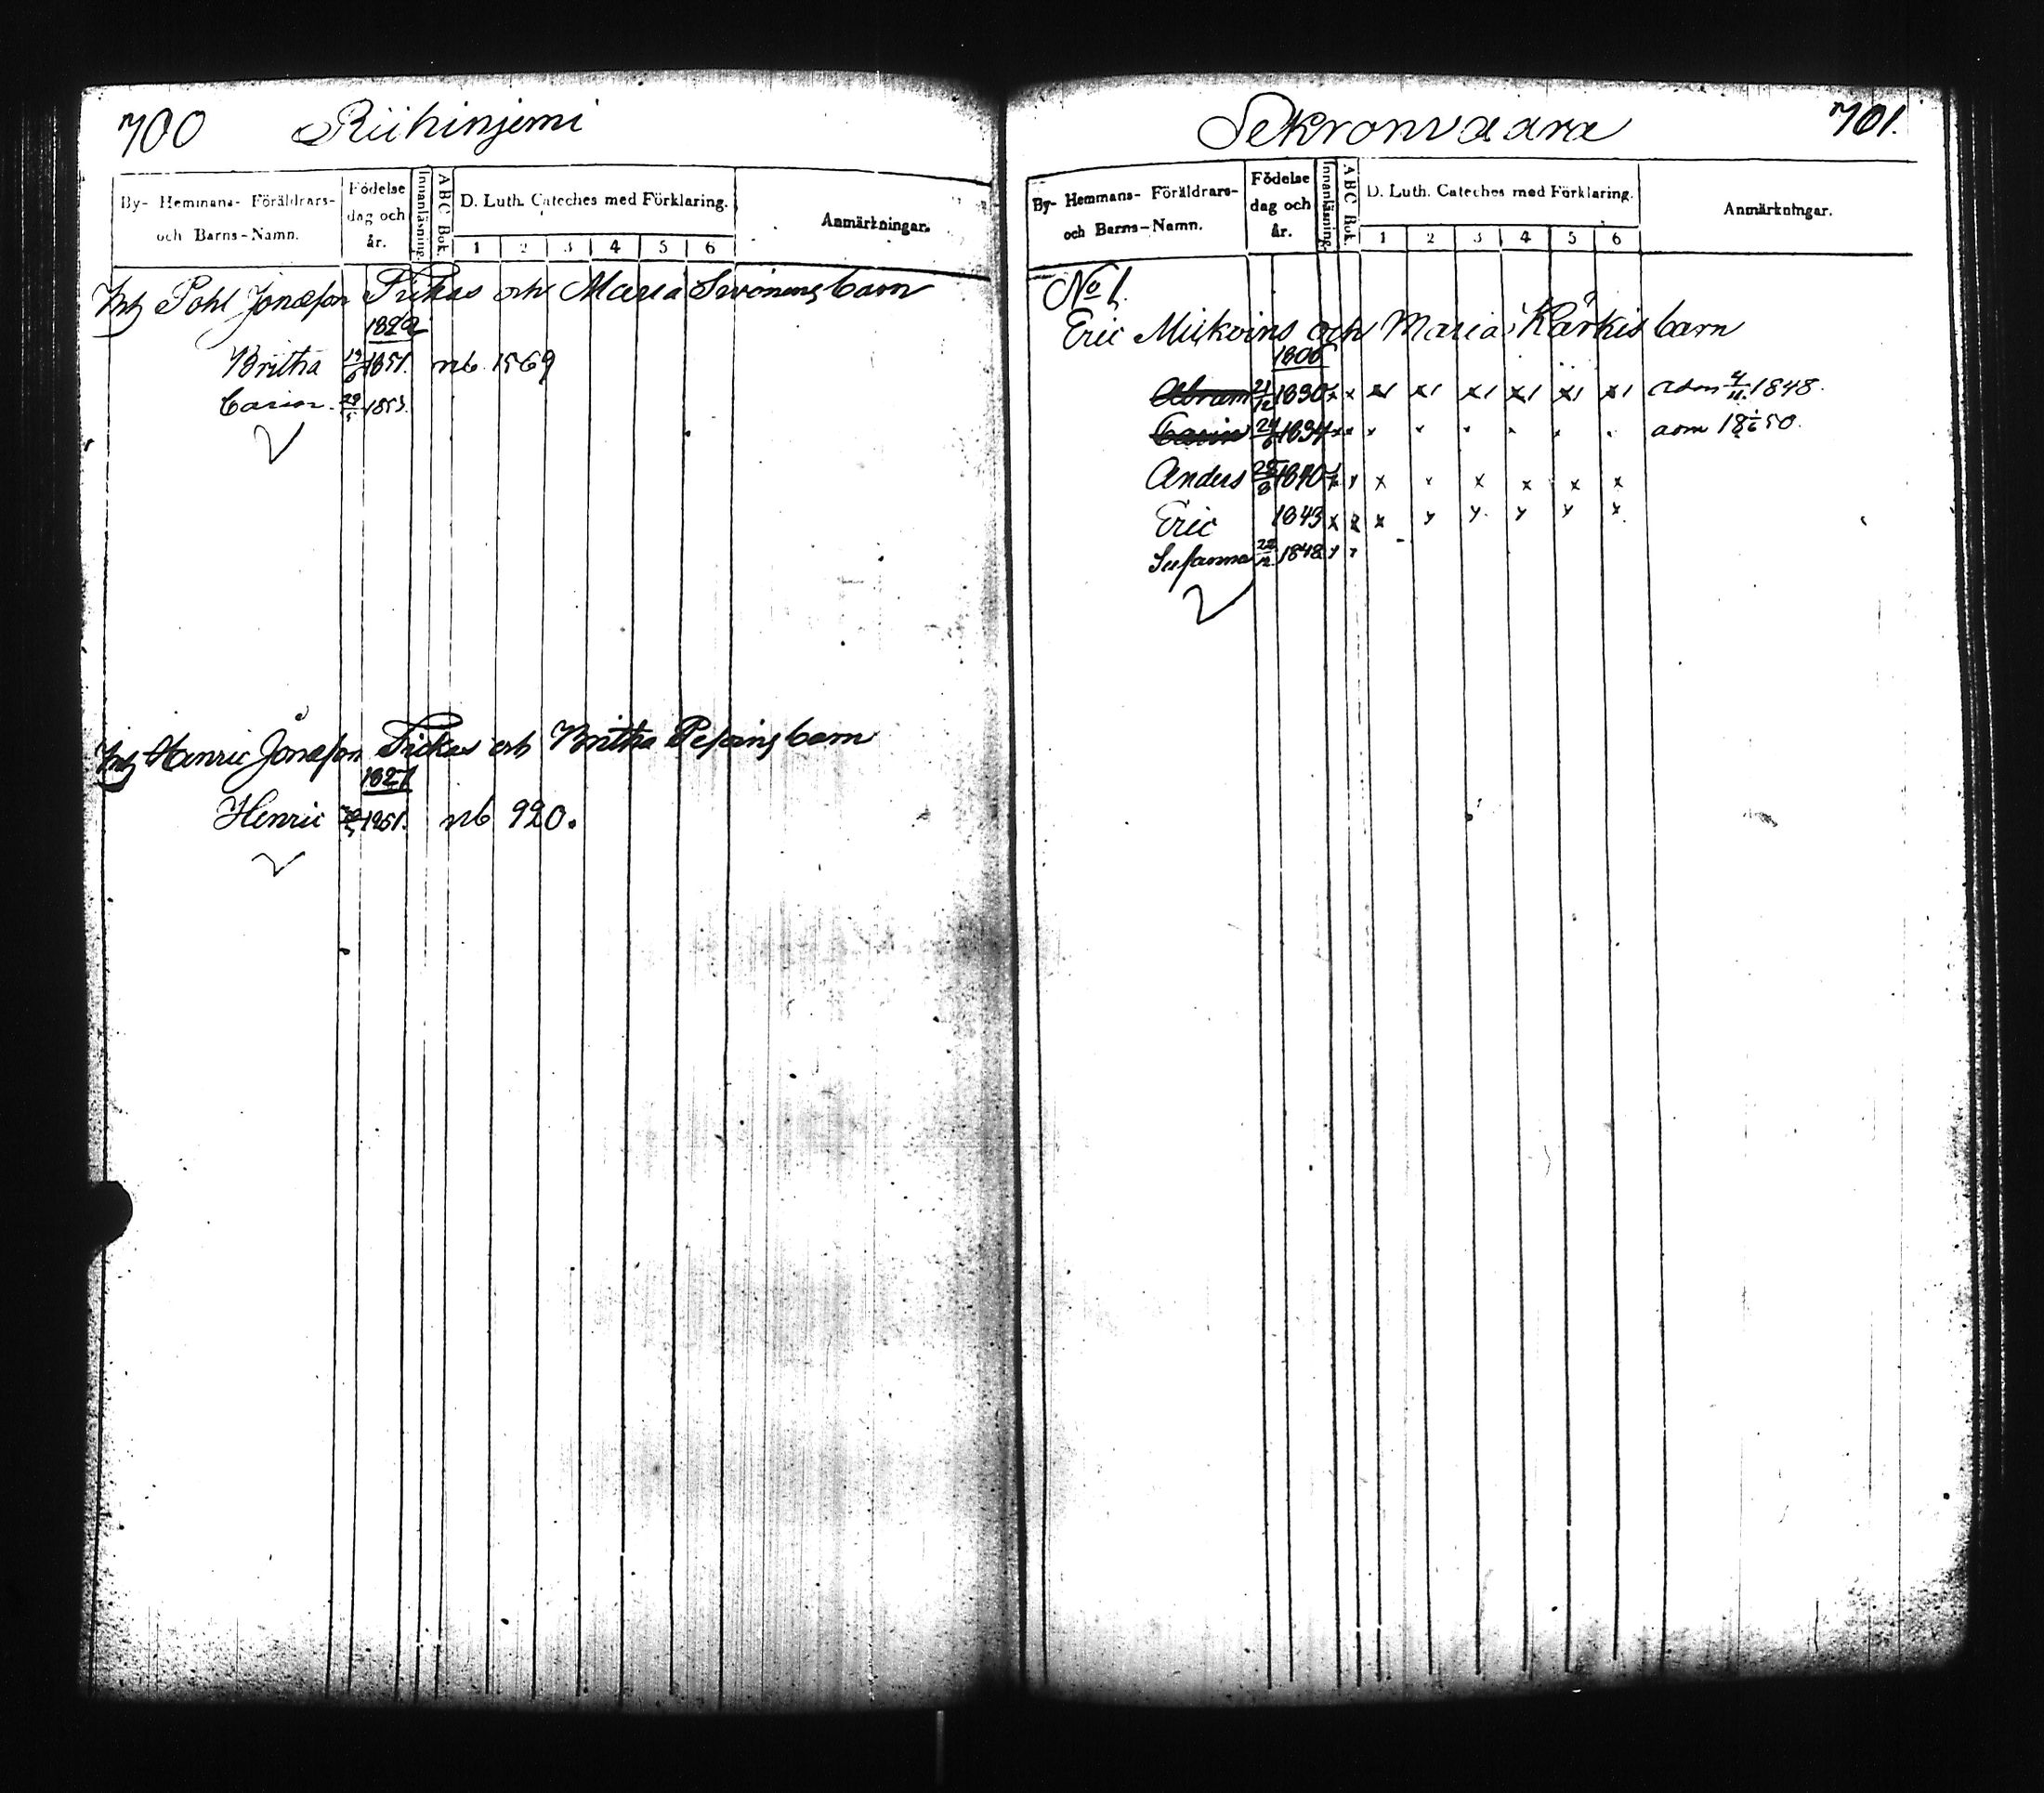 700 Riihinjemi
By- Hemmans- Föräldrars- och Barns-Namn. Födelse dag och år. Innanläsning. ABC Bok. D. Luth. Cateches med Förklaring. Anmärkningar.
1 2 3 4 5 6
Pohl Jonasson och Maria barn
Britha 19/6 1851. nb. 1569
Carin 1853.
Henric Jonasson och Britha barn
1827
Henric 1851. nb 920.
Sekronvaara 701.
By- Hemmans- Föräldrars- och Barns-Namn. Födelse dag och år. Innanläsning. ABC Bok. D. Luth. Cateches med Förklaring. Anmärkningar.
1 2 3 4 5 6
No 1.
Eric och Maria Kärkis barn
Abram 21/12 1830 x x x1 x1 x1 x1 x1 x1 adm 1848.
Carin 1834 x x x x x x x adm 50.
Anders 25/8 1840 x x x x x x x x
Eric 1843 x x x x x x x x
Susanna 22/12 1848 x x